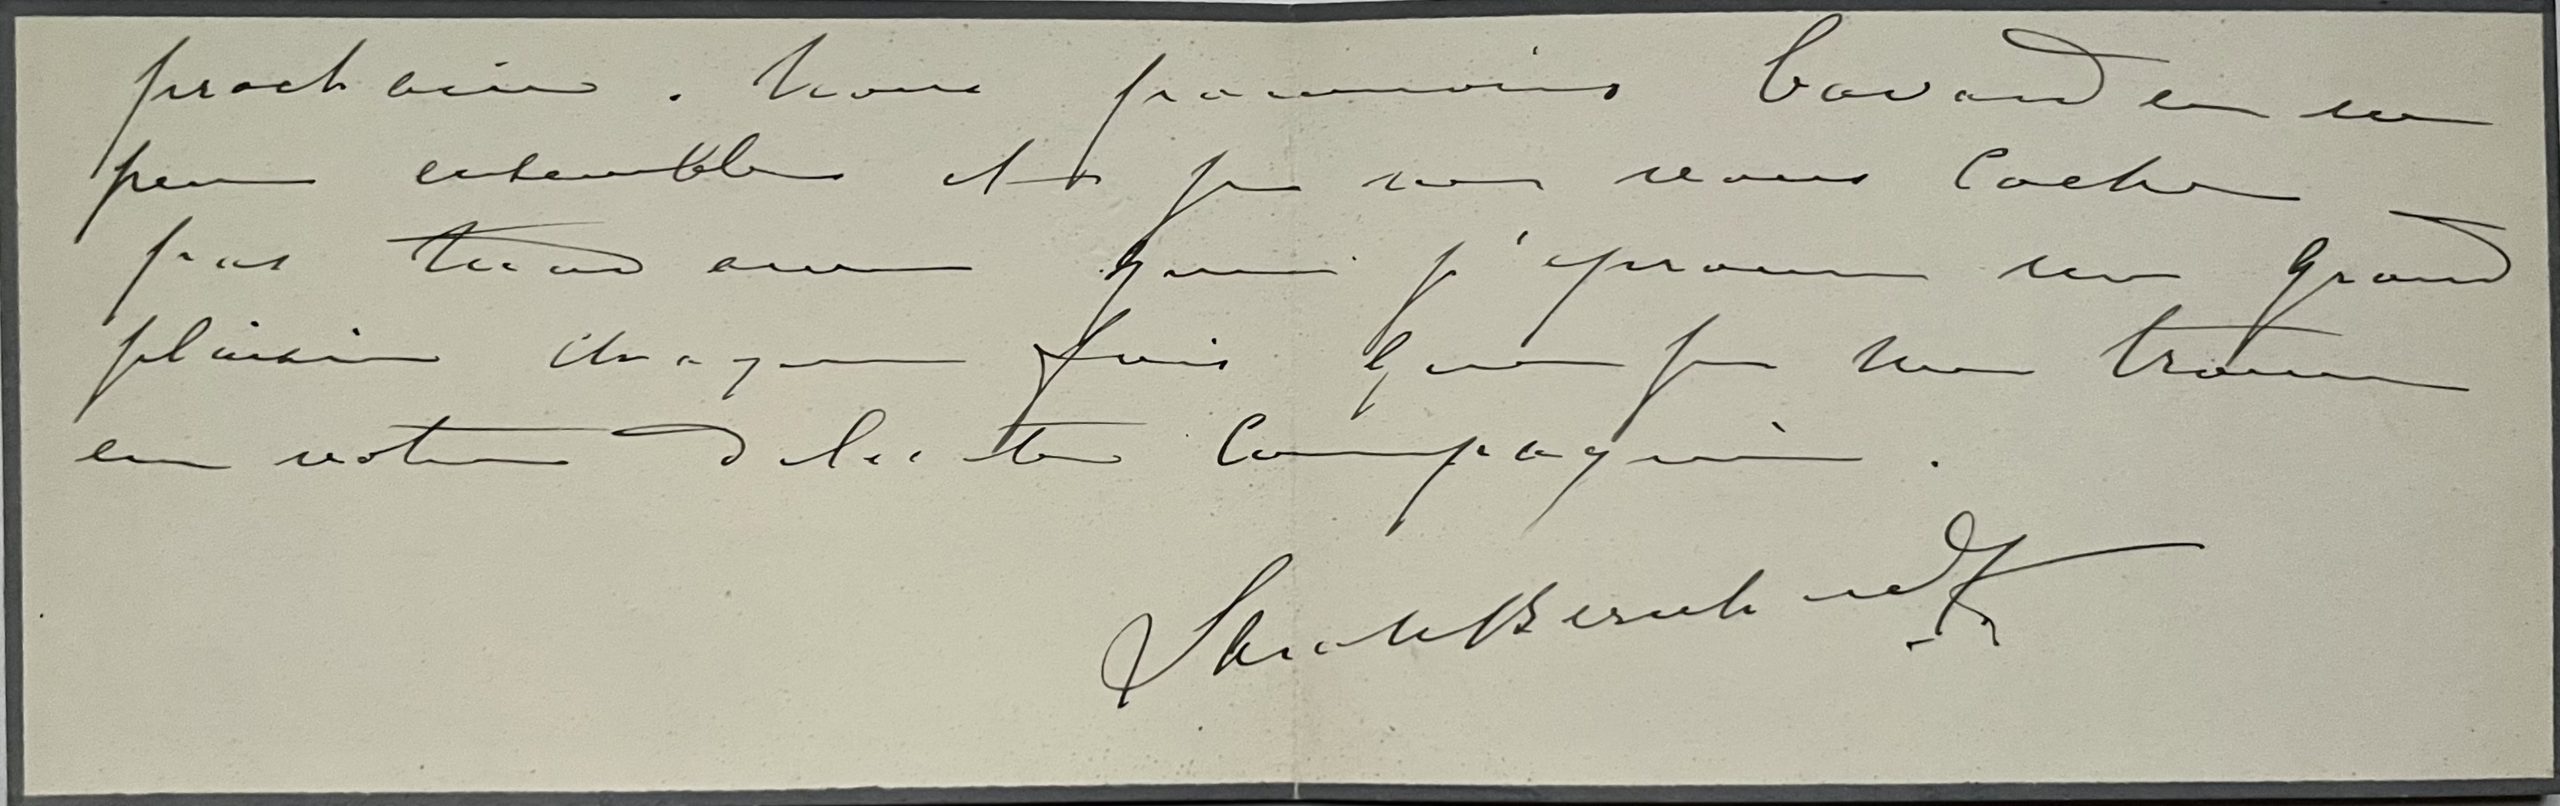 prochain. Nous pourrons bavarder un
peu ensemble et je ne vous cache
pas Madame que j'éprouve un grand
plaisir chaque fois que je me trouve
en votre délicate compagnie.
Sarah Bernhardt